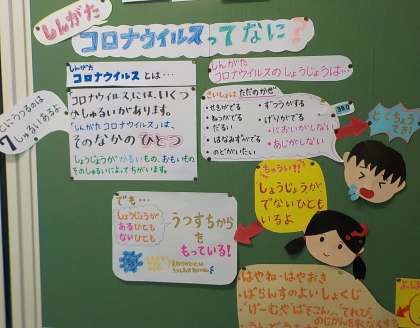 しんがた
コロナウイルスってなに?
しんがた
コロナウイルスとは…
コロナウイルスには、いくつ
かしゅるいがあります。
「しんがたコロナウイルス」は、
そのなかのひとつ
しょうじょうがかるいもの、おもいもの
そのしゅるいによってちがいます。
ひとにうつるのは
7しゅるいあるよ
しんがた
コロナウイルスのしょうじょうは…
さいしょはただのかぜ
・せきがでる
・ねつがでる
・だるい
・はなみずがでる
・のどがいたい
・ずつうがする
・げりがでる
・においがしない
・あじがしない
とくちょう
ちゅうい!!
しょうじょうが
でないひとも
いるよ
でも…
しょうじょうが
あるひとも
ないひとも
うつすちから
を
もっている!
・はやね・はやおき
・ばらんすのよいしょくじ
・げーむやぱそこん、てれび
のじかんをみじかくする